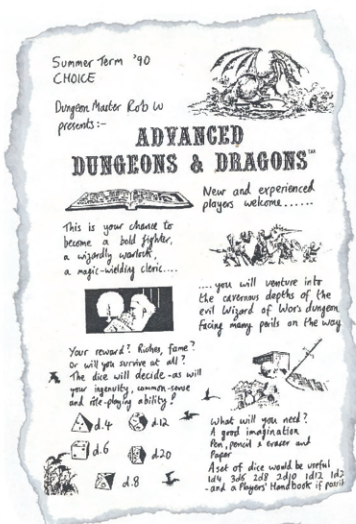 Summer Term '90
CHOICE
Dungeon Master Rob W
presents:-
ADVANCED
DUNGEONS & DRAGONS™
New and experienced
players welcome......
This is your chance to
become a bold fighter,
a wizardly warlock,
a magic-wielding cleric....
....you will venture into
the cavernous depths of the
evil Wizard of Wor's dungeon
facing many perils on the way
Your reward? Riches, fame?
Or will you survive at all?
The dice will decide - as will
your ingenuity, common-sense
and role-playing ability!
d.4
d.12
d.6
d.20
d.8
What will you need?
A good imagination
Pen, pencil & eraser and
Paper
A set of dice would be useful
1d4 3d6 2d8 2d10 1d12 1d2
- and a Players' Handbook if